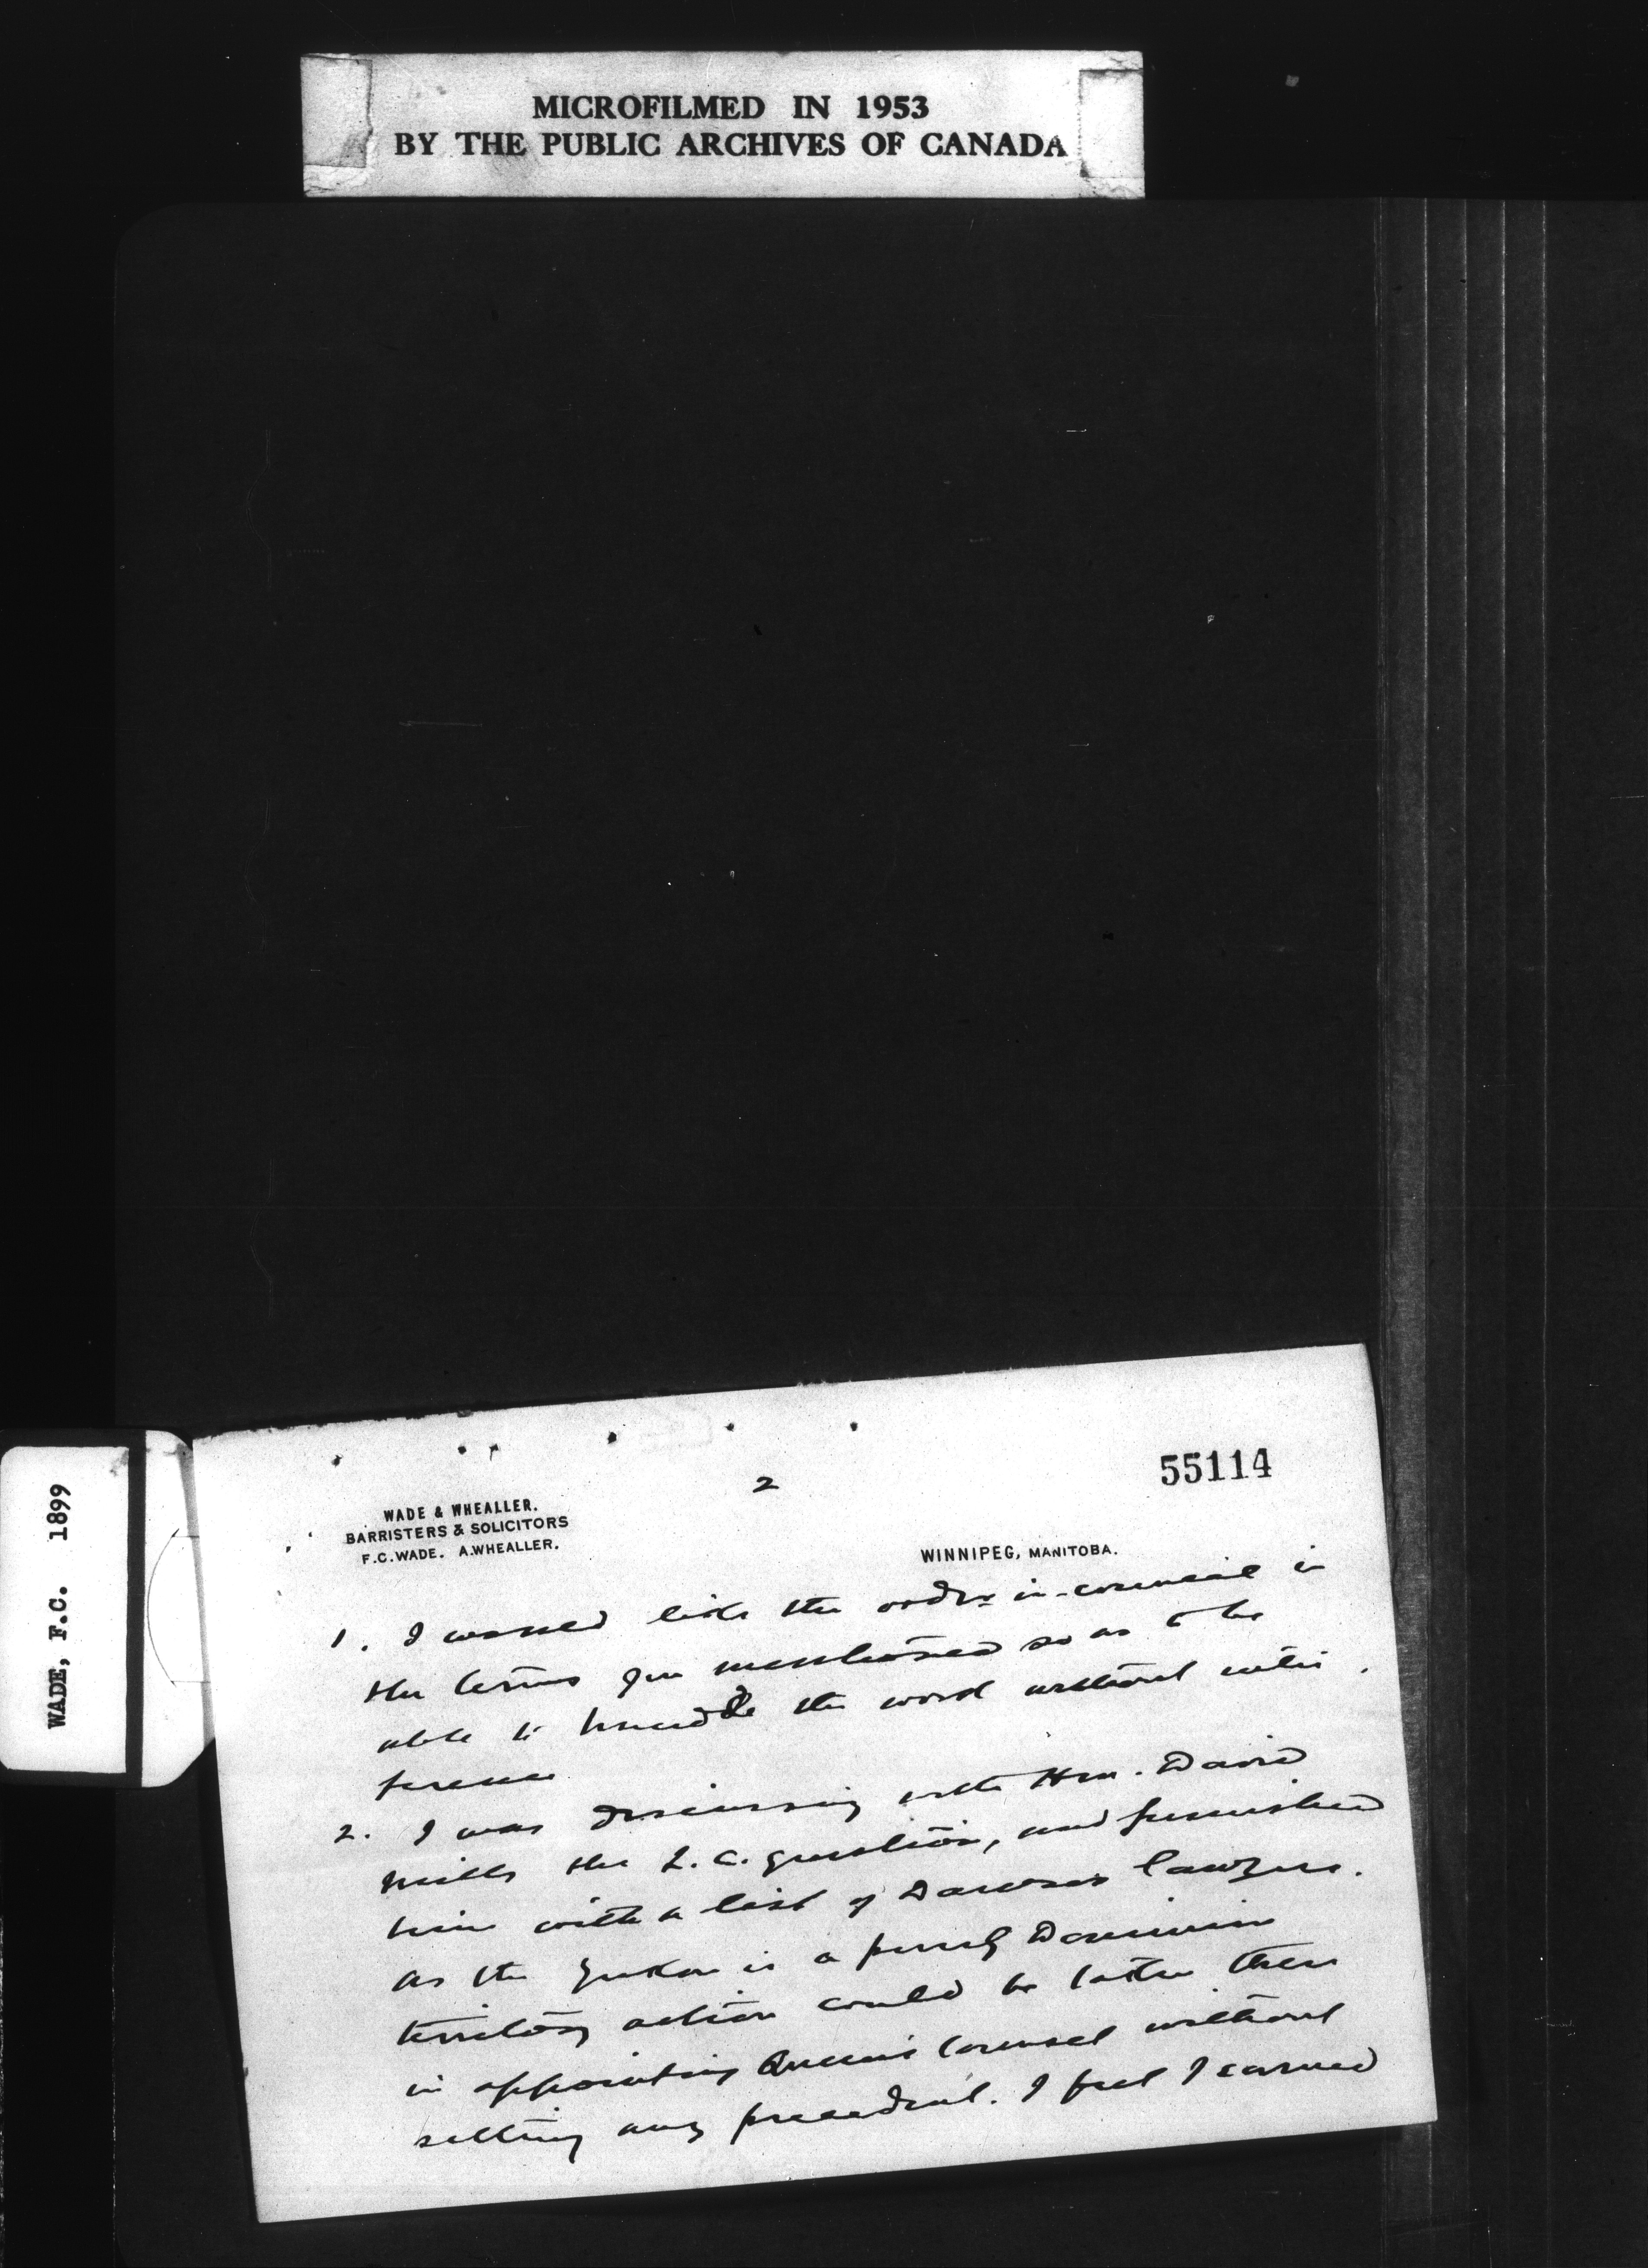 MICROFILMED IN 1953
BY THE PUBLIC ARCHIVES OF CANADA
WADE, F.C. 1899
2
55114
WADE & WHEALLER.
BARRISTERS & SOLICITORS
F.C. WADE. A. WHEALLER.
WINNIPEG, MANITOBA.
1. I would like the order-in-council in
the terms you mentioned so as to be
able to handle the work without inter-
ference
2. I was discussing with Hon. David
Mills the Q.C. question, and furnished
him with a list of Dawson lawyers.
As the Yukon is a purely Dominion
territory action could be taken there
in appointing Queens Counsel without
setting any precedent. I feel I earned